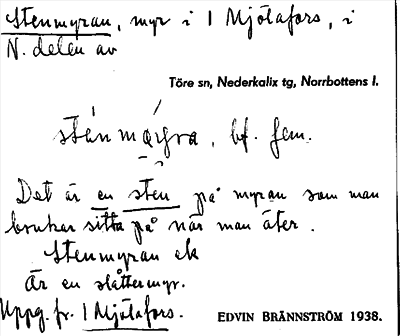 Stenmyran, myr i 1 Mjölafors, i
N. delen av
Töre sn, Nederkalix tg, Norrbottens l.
bf. fem.
Det är en sten på myran som man
brukar sitta på när man äter.
Stenmyran ek
Är en slåttermyr.
Uppg. fr. 1 Mjölafors.
EDVIN BRÄNNSTRÖM 1938.